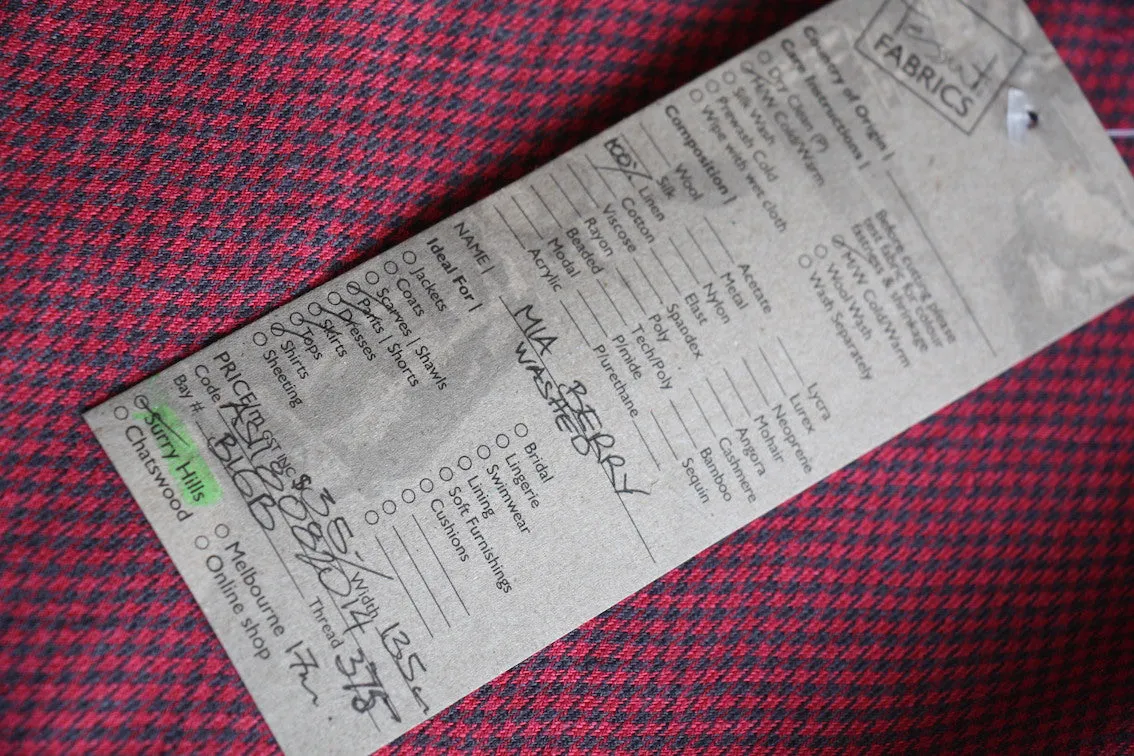 Tessuti
FABRICS
Country of Origin |
Care Instructions |
Dry Clean (P)
M/W Cold/Warm
Silk Wash
Prewash Cold
Wipe with wet cloth
Before cutting please
test fabric for colour
fastness & shrinkage
M/W Cold/Warm
Wool Wash
Wash Separately
Composition |
Wool
Silk
100% Linen
Cotton
Viscose
Rayon
Beaded
Modal
Acrylic
Acetate
Metal
Nylon
Elast
Spandex
Poly
Tech/Poly
P/mide
P/urethane
Lycra
Lurex
Neoprene
Mohair
Angora
Cashmere
Bamboo
Sequin
NAME | MIA BERRY
WASHED
Ideal For |
Jackets
Coats
Scarves | Shawls
Pants | Shorts
Dresses
Skirts
Tops
Shirts
Sheeting
Bridal
Lingerie
Swimwear
Lining
Soft Furnishings
Cushions
PRICE/m GST INC $ 35 Width 135cm
Code Thread 375
Bay #: BIGB 17m
Surry Hills
Chatswood
Melbourne
Online shop